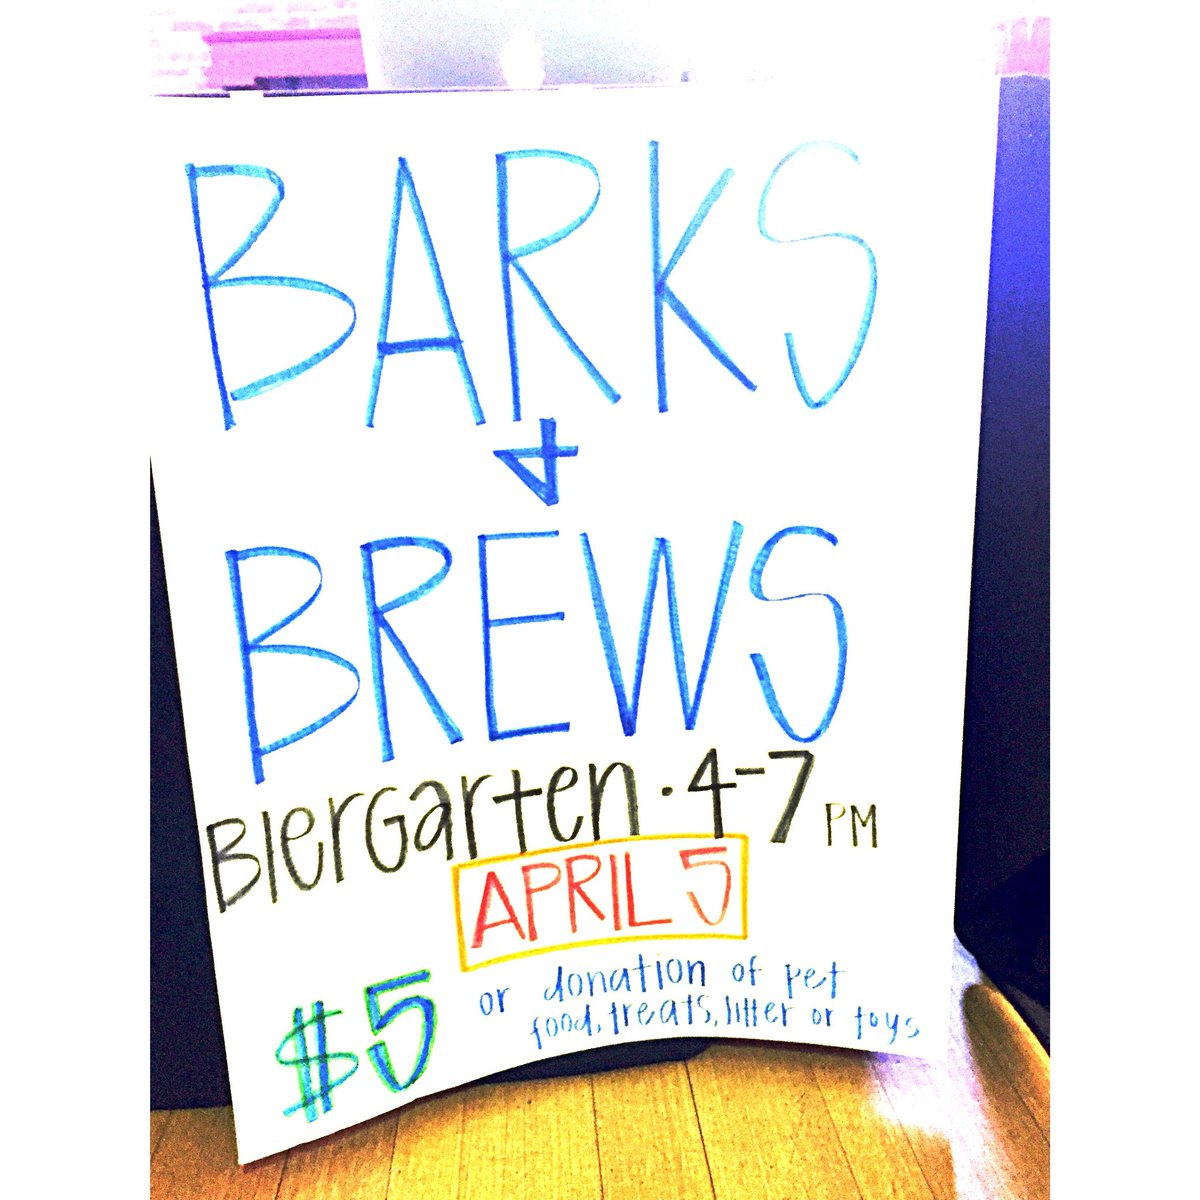 BARKS
&
BREWS
BIerGarten · 4-7 PM
APRIL 5
$5 or donation of pet
food, treats, litter or toys